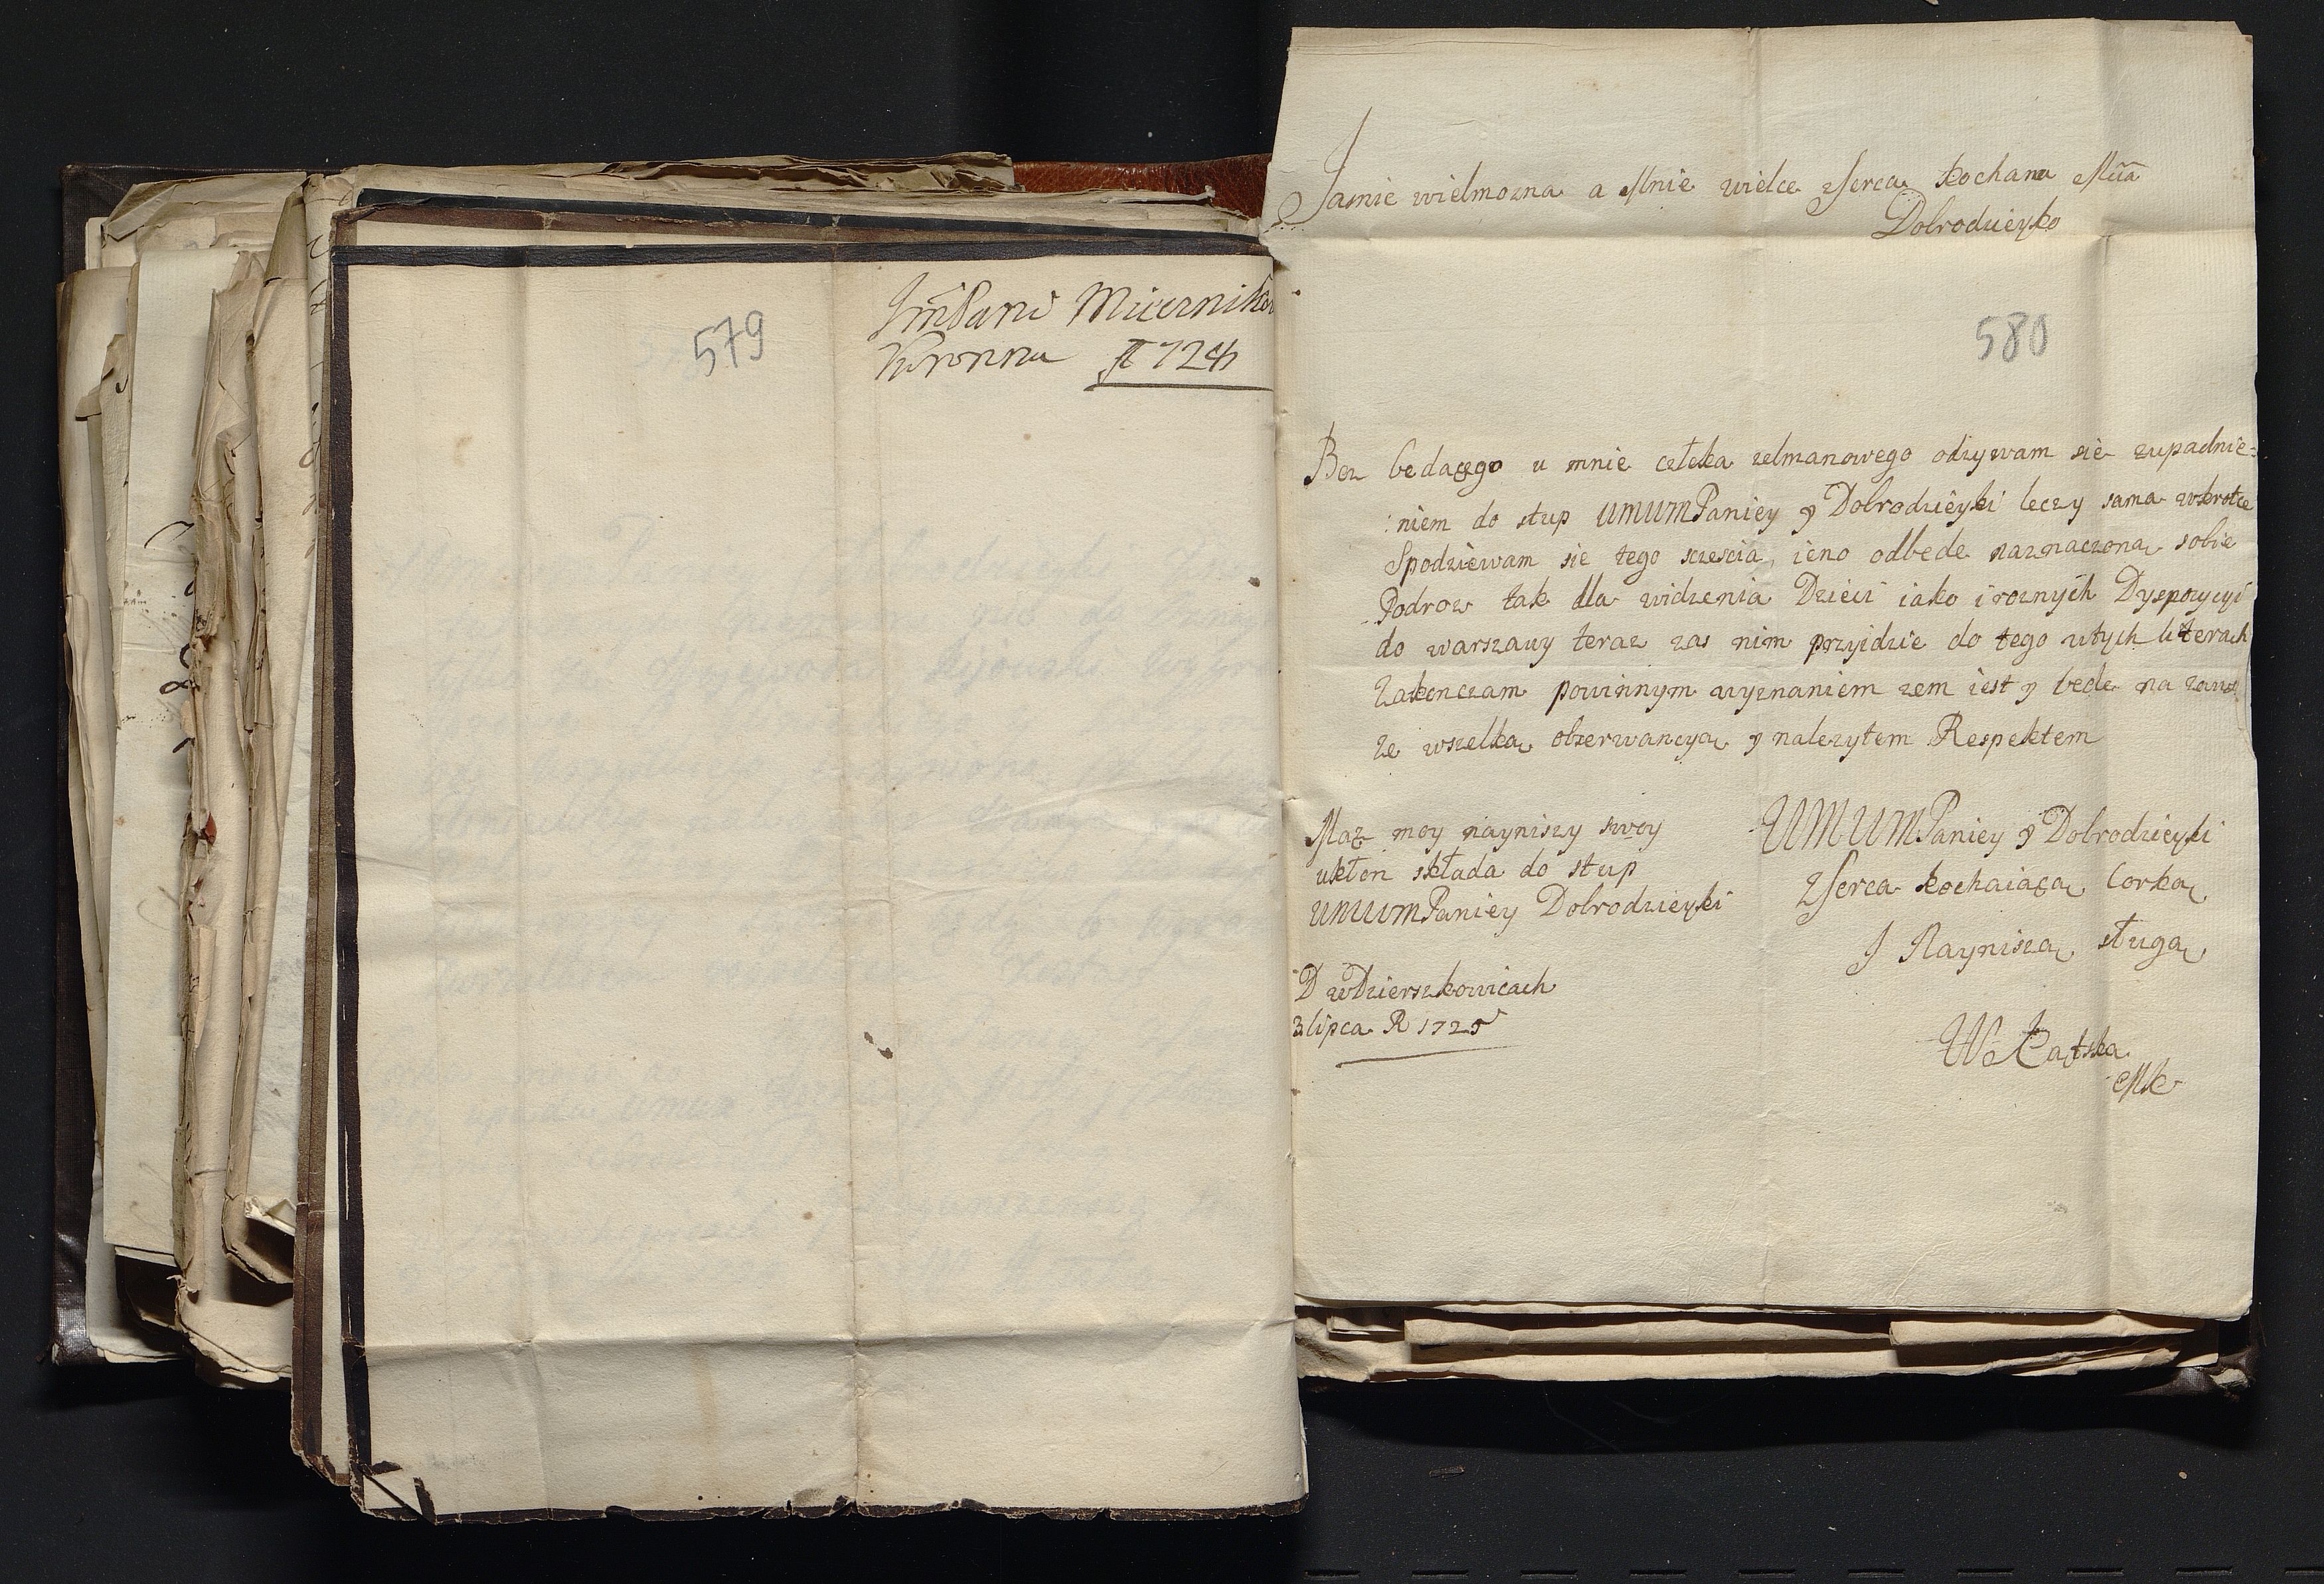 579
JmPani Miecznikow
Koronna A 1724
Jasnie wielmozna a Mnie wielce zserca kochana Mcia
Dobrodzieyko
580
Bez bedącego u mnie człeka zelmanowego odzywam sie zupadnie=
:niem do stup UMUMPaniey y Dobrodzieyki leczy sama wkrotce
Spodziewam sie tego sczescia, ieno odbede naznaczoną sobie
Podroz tak dla widzenia Dzieci iako i roznych Dyspozycyi
do warszawy teraz zas nim przyidzie do tego wtych literach
Zakonczam powinnym wyznaniem zem iest y bede na zawsze
Ze wszelką obserwancyą y nalezytem Respektem
Mąz moy nayniszy swoy
ukłon składa do stup
UMUMPaniey Dobrodzieyki
UMUMPaniey y Dobrodzieyki
Zserca kochaiącą Corką
J Nayniszą sługą
D wDzierszkowicach
3 lipca R 1725
W Łątska
Mk